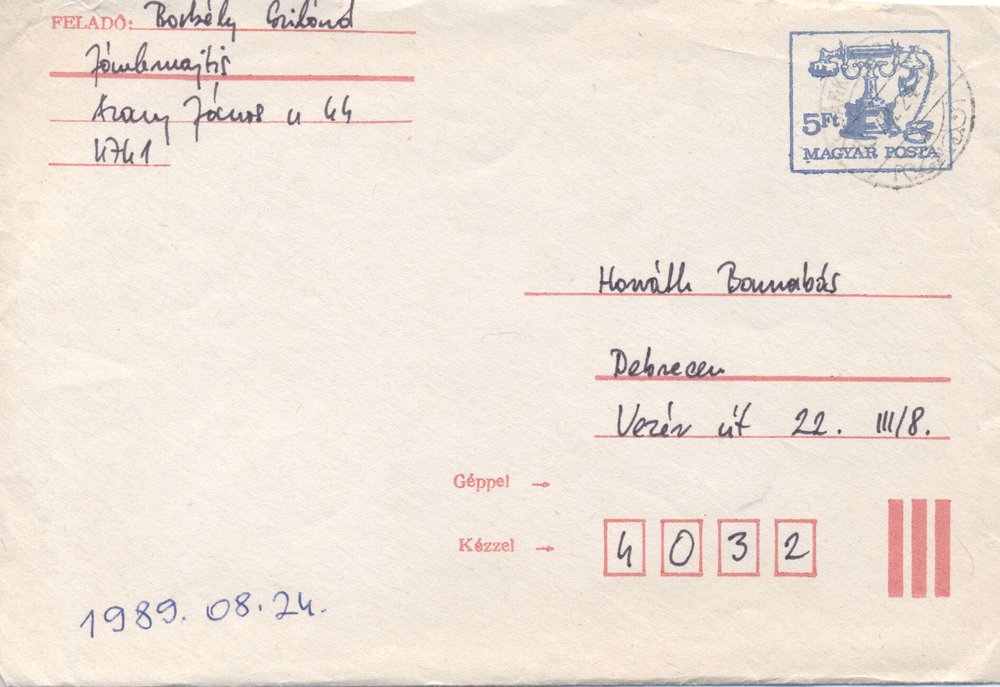 FELADÓ: Borbély Szilárd
Jánkmajtis
Arany János u 44
4741
5Ft
MAGYAR POSTA
Horváth Barnabás
Debrecen
Vezér út 22. III/8.
Géppel →
Kézzel →
4 0 3 2
1989. 08. 24.